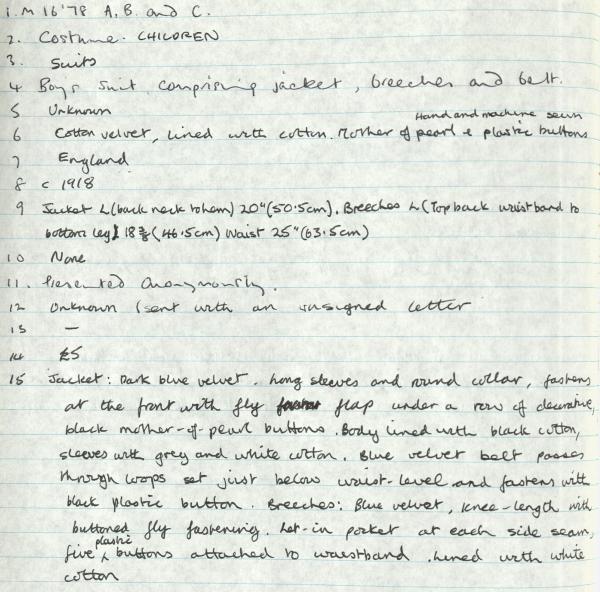 1. M 16'78 A, B. and C.
2. Costume. CHILDREN
3. Suits
4 Boy's suit, comprising jacket, breeches and belt.
5 Unknown
Hand and machine sewn
6 Cotton velvet, lined with cotton. Mother of pearl & plastic buttons
7 England
8 c 1918
9 Jacket L (back neck to hem) 20" (50.5cm). Breeches L (Top back waistband to
bottom leg) 18 (46.5cm) Waist 25" (63.5cm)
10 None
11. Presented Anonymously.
12 Unknown (sent with an unsigned letter
13 —
14 £5
15 Jacket: Dark blue velvet. Long sleeves and round collar, fastens
at the front with fly flap under a row of decorative,
black mother-of-pearl buttons. Body lined with black cotton,
sleeves with grey and white cotton. Blue velvet belt passes
through loops set just below waist-level and fastens with
black plastic button. Breeches: Blue velvet, knee-length with
buttoned fly fastening. Let-in pocket at each side seam,
five plastic buttons attached to waistband. Lined with white
cotton